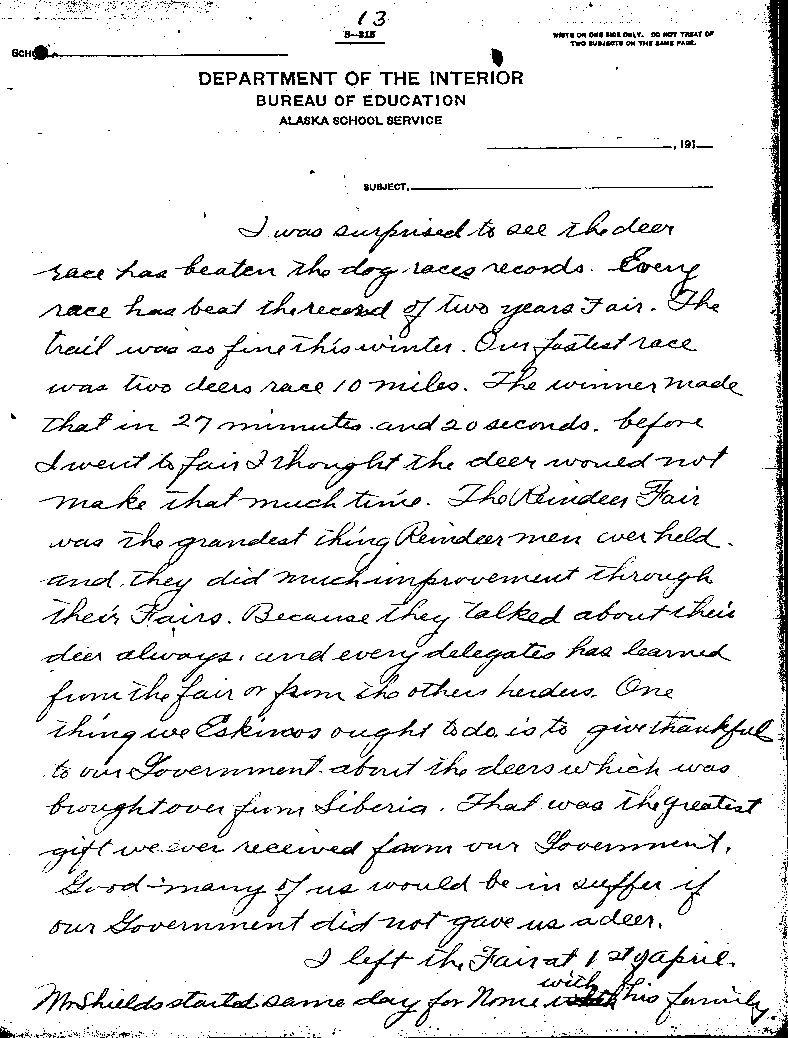 13
8-215
WRITE ON ONE SIDE ONLY. DO NOT TREAT OF
TWO SUBJECTS ON THE SAME PAGE.
DEPARTMENT OF THE INTERIOR
BUREAU OF EDUCATION
ALASKA SCHOOL SERVICE
, 191
SUBJECT,
I was surprised to see the deer
race has beaten the dog races records. Every
race has beat the record of two years Fair. The
trail was so fine this winter. Our fastest race
was two deers race 10 miles. The winner made
that in 27 mimutes and 20 seconds. before
I went to fair I thought the deer would not
make that much time. The Reindeer Fair
was the grandest thing Reindeer men ever held.
and they did much improvement through
their Fairs. Because they talked about their
deer always. and every delegates has learned
from the fair or from the others herders. One
thing we Eskimos ought to do is to give thankful
to our Government about the deers which was
brought over from Siberia. That was the greatest
gift we ever received from our Government.
Good-many of us would be in suffer if
our Government did not gave us a deer.
I left the Fair at 1st of april.
with
Mr Shields started same day for Nome his family.